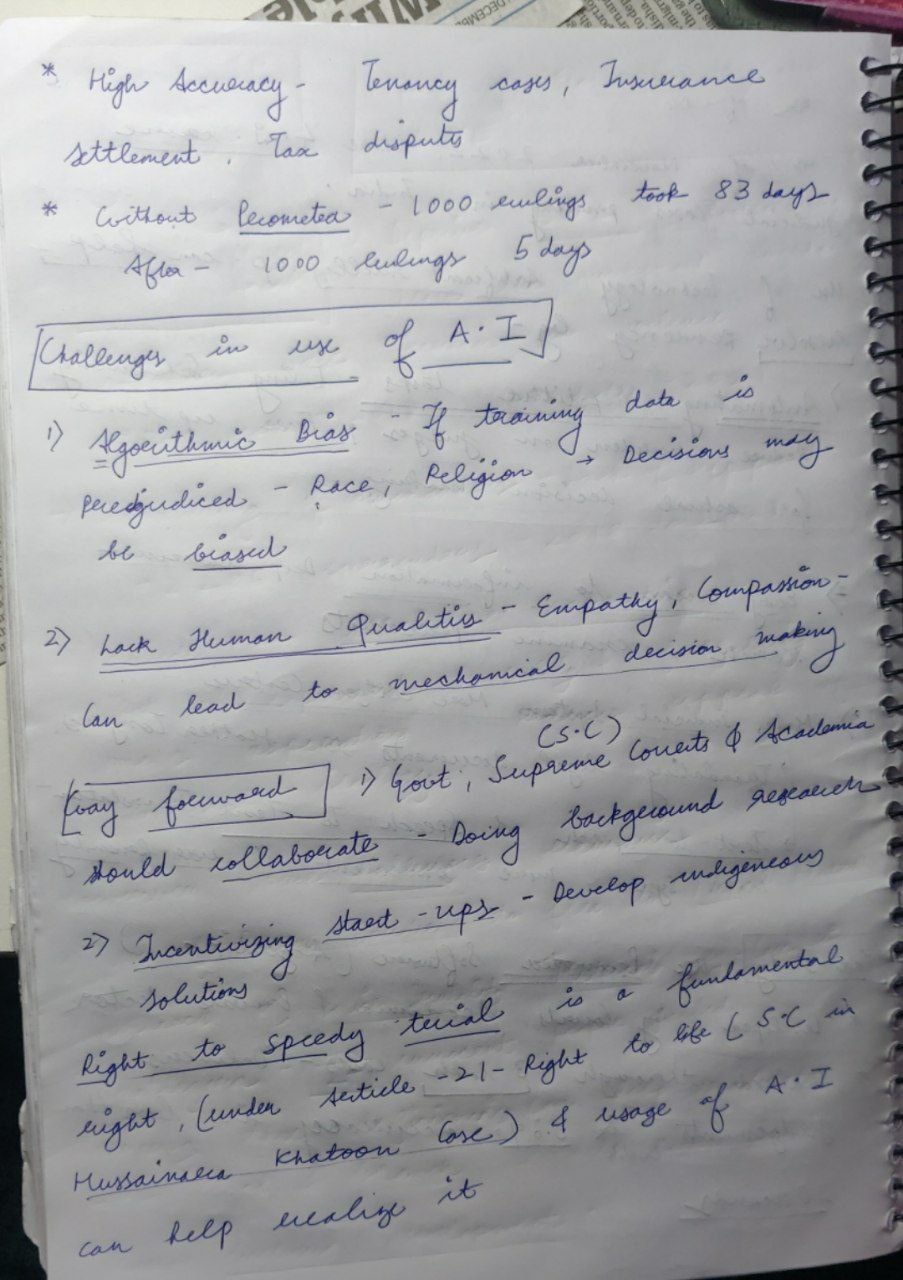 * High Accuracy - Tenancy cases, Insurance
settlement, Tax disputes
* Without Prometea - 1000 rulings took 83 days
After - 1000 rulings 5 days
Challenges in use of A.I
1) Algorithmic Bias - If training data is
prejudiced - Race, Religion → Decisions may
be biased
2) Lack Human Qualities - Empathy, Compassion -
Can lead to mechanical decision making
(S.C)
Way forward 1) Govt, Supreme Courts & Academia
should collaborate - Doing background research
2) Incentivizing start-ups - Develop indigeneous
solutions
Right to speedy trial is a fundamental
right, (under Article -21- Right to life (S.C in
Hussainara Khatoon Case) & usage of A.I
can help realize it